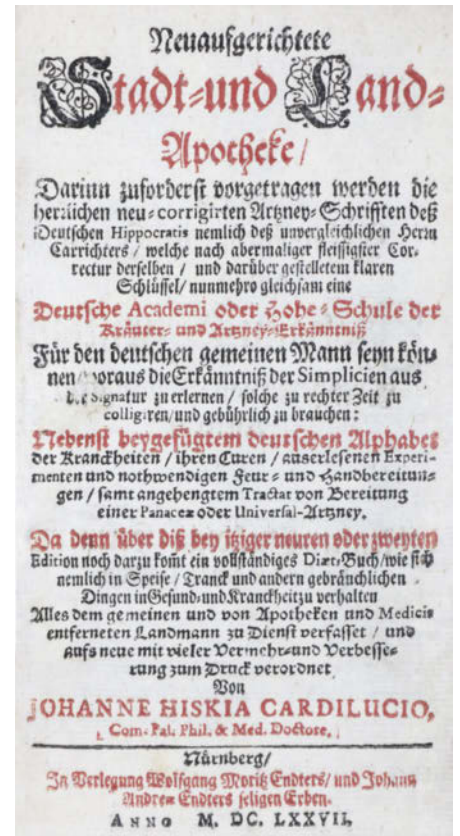 Neuaufgerichtete
Stadt-und Land-
Apotheke /
Darinn zuforderst vorgetragen werden die
herrlichen neu-corrigirten Artzney-Schrifften deß
Deutschen Hippocratis nemlich deß unvergleichlichen Herrn
Carrichters / welche nach abermaliger fleissigster Cor-
rectur derselben / und darüber gestelletem klaren
Schlüssel / nunmehro gleichsam eine
Deutsche Academi oder Hohe-Schule der
Kräuter- und Artzney-Erkänntniß
Für den deutschen gemeinen Mann seyn kön-
nen woraus die Erkänntniß der Simplicien aus
die Signatur zu erlernen / solche zu rechter Zeit zu
colligiren / und gebührlich zu brauchen:
Nebenst beygefügtem deutschen Alphabet
der Kranckheiten / ihren Curen / auserlesenen Experi-
menten und nothwendigen Feur- und Handbereitun-
gen / samt angehengtem Tractat von Bereitung
einer Panaceæ oder Universal-Artzney.
Da denn über diß bey itziger neuren oder zweyten
Edition noch darzu kom̃t ein vollständiges Diæt-Buch / wie sich
nemlich in Speise / Tranck und andern gebräuchlichen
Dingen in Gesund-und Kranckheit zu verhalten
Alles dem gemeinen und von Apotheken und Medicis
entferneten Landmann zu Dienst verfasset / und
aufs neue mit vieler Vermehr-und Verbesse-
rung zum Druck verordnet
Von
JOHANNE HISKIA CARDILUCIO,
Com. Pal. Phil. & Med. Doctore,
Nürnberg /
In Verlegung Wolfgang Moritz Endters / und Johann
Andreæ Endters seligen Erben.
ANNO M. DC. LXXVII.